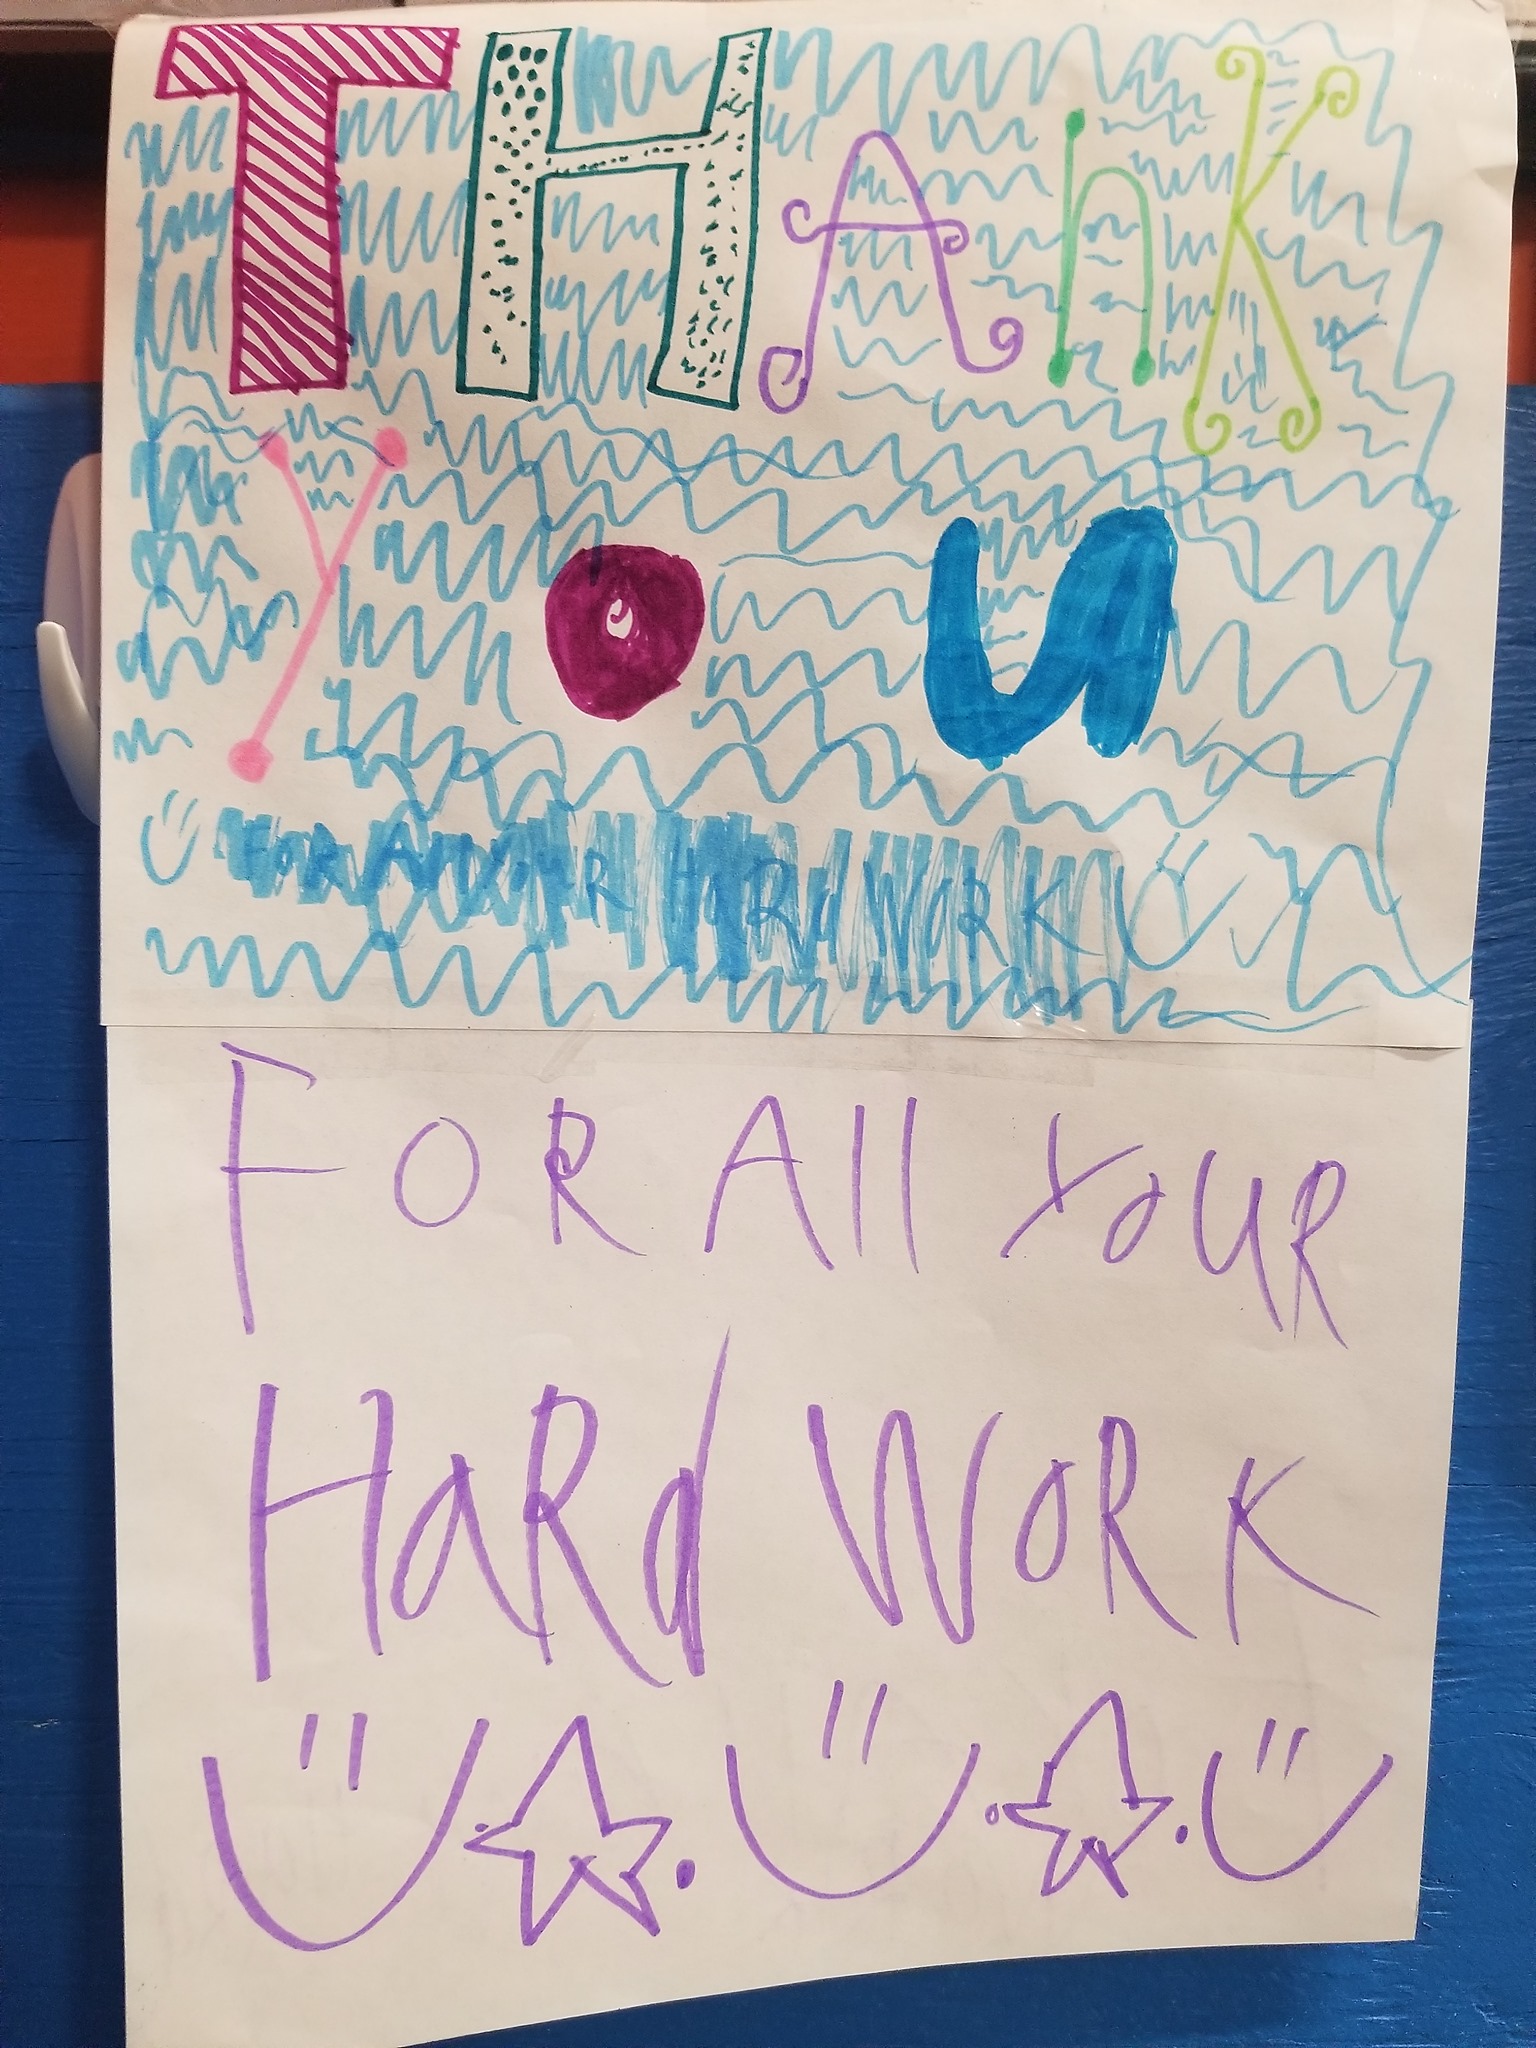 THAnK
You
For All your Hard Work
FOR All YoUR
HaRd WoRK